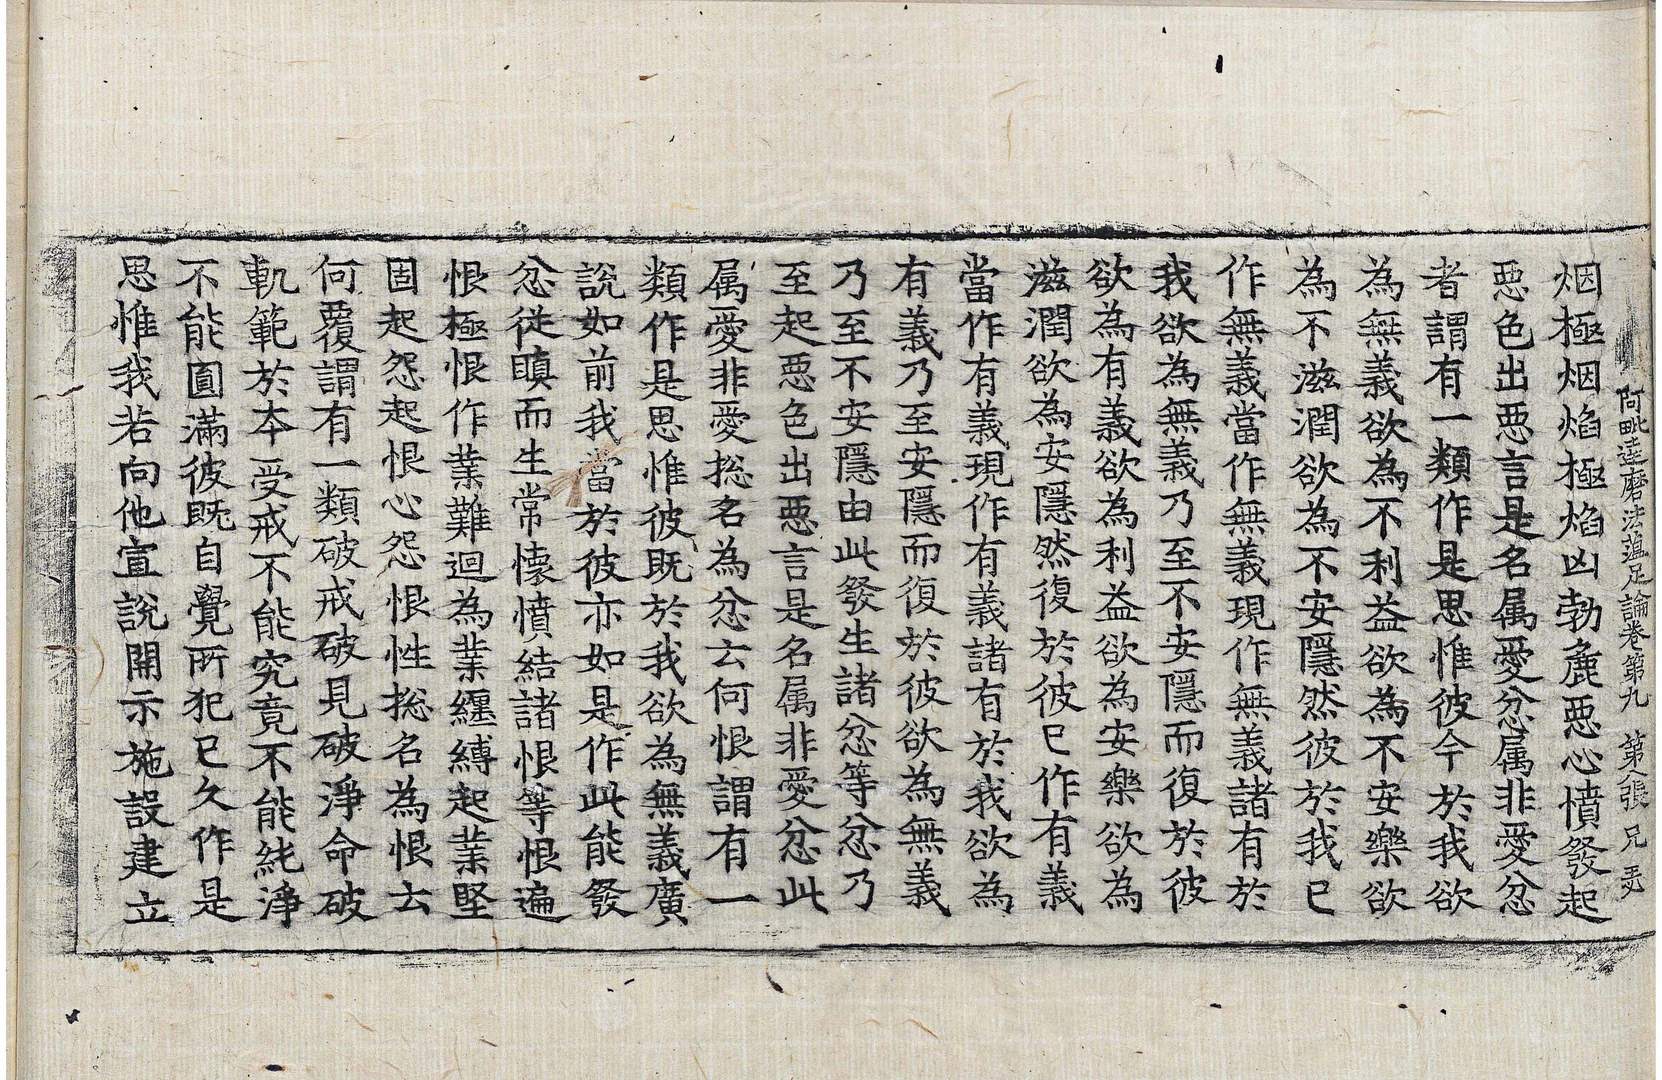 阿毗達磨法蕰足論卷第九　第八張　兄
烟極烟焰極焰凶勃麁惡心憤發起
惡色出惡言是名属愛忿属非愛忿
者謂有一類作是思惟彼今於我欲
為無義欲為不利益欲為不安樂欲
為不滋潤欲為不安隱然彼於我已
作無義當作無義現作無義諸有於
我欲為無義乃至不安隱而復於彼
欲為有義欲為利益欲為安樂欲為
滋潤欲為安隱然復於彼已作有義
當作有義現作有義諸有於我欲為
有義乃至安隱而復於彼欲為無義
乃至不安隱由此發生諸忿等忿乃
至起惡色出惡言是名属非愛忿此
属愛非愛揔名為忿云何恨謂有一
類作是思惟彼既於我欲為無義廣
說如前我當於彼亦如是作此能發
忿從瞋而生常懷憤結諸恨等恨遍
恨極恨作業難迴為業纏縛起業堅
固起怨起恨心怨恨性揔名為恨云
何覆謂有一類破戒破見破淨命破
軌範於本受戒不能究竟不能純淨
不能圓滿彼既自覺所犯已久作是
思惟我若向他宣說開示施設建立